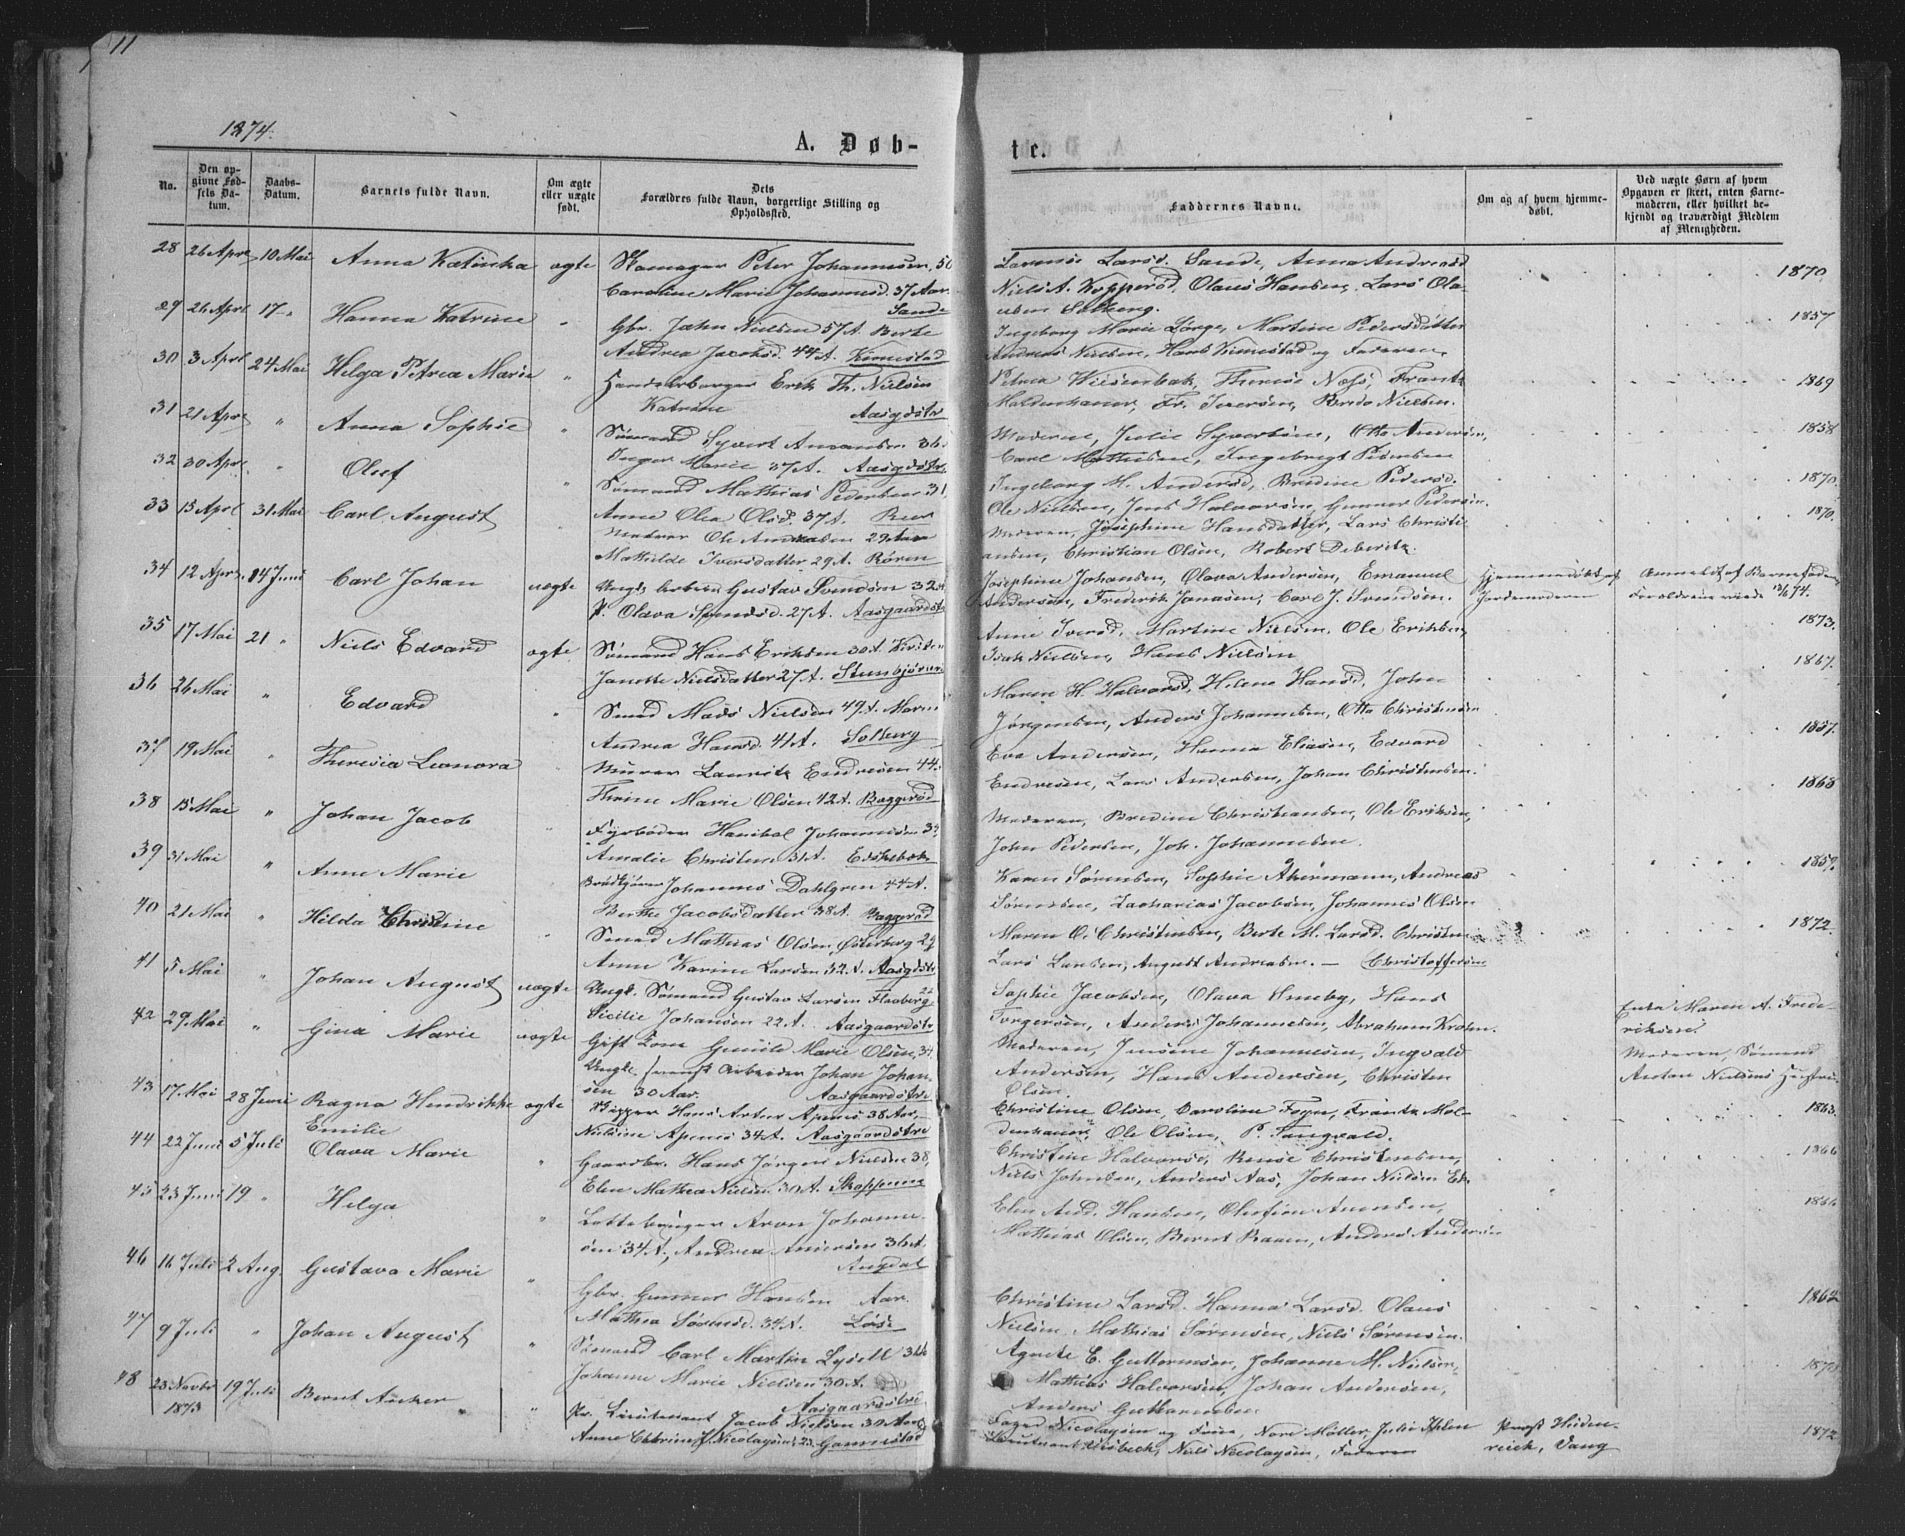 11
1874.
A. Døb-
te.
No.
Den opgivne Fødsels Datum.
Daabs-Datum.
Barnets fulde Navn.
Om ægte eller uægte født.
Dets Forældres fulde Navn, borgerlige Stilling og Opholdssted.
Faddernes Navne.
Om og af hvem hjemmedøbt.
Ved uægte Børn af hvem Opgaven er skeet, enten Barnemoderen, eller hvilket bekjendt og troværdigt Medlem af Menigheden.
28 26 Apr 10 Mai Anna Katinka ægte Skomager Peter Johannesen 50
Caroline Marie Johannesd. 37 Aar. Sande
Larsd. Sande, Anna Andreasd
Niels A. Kopperød, Olaus Hansen, Lars Olausen Solberg.
1870
29 26 Apr 17 " Hanna Katrine " Gbr. John Nielsen 57 A. Berte
Andrea Jacobsd. 44 A. Kirkestad
Ingeborg Marie Lørge, Martine Pedersdatter
Andreas Nielsen, Hans og Faderen.
1857
30 3 Apr 24 Mai Helga Petrea Marie " Handelsborger Erik Th. Nielsen
Katrine Aasgdstr
Petrea Wiesenbak, Therese Næss, Frantz
Moldenhauer, Fr. Iversen, Bredo Nielsen.
1869
31 21 Apr " Anna Sophie " Sømand Syvert Amandsen 36
Inger Marie 37 A. Aasgdstr.
Moderen, Julie Syvertsen, Otto Andersen,
Carl Mathisen, Ingebrigt Pedersen
1858
32 30 Apr " Oluf " Sømand Mathias Pedersen 31
Anne Olea Olsd. 37 A. Rør
Ingeborg M. Andersd, Bredine Pedersd.
Ole Nielsen, Jens Halvorsen, Gunner Pedersen.
1870
33 15 Apr 31 Mai Carl August Murer Ole Andreasen 29 Aar
Mathilde Iversdatter 29 A. Røren
Moderen, Josephine Hansdatter, Lars Christiansen, Christian Olsen, Robert Deberitz.
1870.
34 12 Apr. 14 Juni Carl Johan uægte Ungk. Arbeider Gustav Svendsen 32 A
P. Olava Svendsd. 27 A. Aasgaardstr
Josephine Johansen, Olava Andersen, Emanuel
Andersen, Frederik Jonasen, Carl J. Svendsen.
Hjemmedøbt af Jordemoderen
Anmeldt af Barnefaderen
Forældrene viede 13/6 74.
35 17 Mai 21 " Niels Edvard ægte Sømand Hans Eriksen 30 A.
Janette Nielsdatter 27 A.
Anne Iversd. Martine Nielsen, Ole Eriksen,
Isak Nielsen, Hans Nielsen
1873.
36 26 Mai " Edvard " Smed Mads Nielsen 49 A. Maren
Andrea Hansd. 41 A. Solberg
Maren H. Halvorsd, Helene Hansd, John
Jørgensen, Anders Johannesen, Otto Christensen
1867.
37 19 Mai " Theresia Leonora Murer Lauritz Endresen 44.
Thrine Marie Olsen 42 A. Baggerød
Eva Andersen, Hanna Eliasen, Edvard
Endresen, Lars Andersen, Johan Christensen.
1857.
38 15 Mai " Johan Jacob " Fyrbøder Hanibal Johannesen 34
Amalie Christens. 31 A.
Moderen, Bredine Christiansen, Ole Eriksen,
John Pedersen, Joh. Johannesen.
1868
39 31 Mai " Anne Marie Johannes Dahlgren 44 A.
Berthe Jacobsdatter 38 A. Baggerød
Karen Sørensen, Sophie Akermann, Andreas
Sørensen, Zacharias Jacobsen, Johannes Olsen
1859
40 21 Mai " Hilda Christine " Smed Mathias Olsen, Østerberg 29
Anne Karine Larsen 32 A. Aasgdstr
Maren O. Christensen, Berte M. Larsd. Christen
Lars Larsen, August Andreasen. — Christoffersen
1872
41 5 Mai " Johan August uægte Ungk. Sømand Gustav Larsen 22
Cicilie Johansen 22 A. Aasgaardstr
Sophie Jacobsen, Olava Huseby, Hans
Torgersen, Anders Johannesen, Abraham Krohn.
Enke Maren A. Frederiksen.
42 29 Mai " Gina Marie uægte Gift Kone Gunild Marie Olsen, 34.
Ungk. svensk Arbeider Johan Johansen 30 Aar. Aasgaardstr
Moderen, Johannesen, Ingvald
Andersen, Hans Andersen, Christen
Olsen.
Moderen, Sømand
Anton Nielsens Hustru
43 17 Mai 28 Juni Ragna Hendrikke
Emilie ægte Skipper Hans Arter Apenes 38 Aar
Nielsine Apenes 34 A. Aasgaardstr
Christine Olsen, Caroline Foyn, Frantz Moldenhauer, Ole Olsen, P. Tangvald.
1863.
44 22 Juni 5 Juli Olava Marie " Gaardbr. Hans Jørgen Nielsen 38,
Elen Mathea Nielsen 30 A. Skoppum
Christine Halvorsd, Christensen,
Niels Johnsen, Anders Aas, Johan Nielsen Ek.
1866
45 23 Juni 19 " Helga " Aron Johannesen 34 A., Andrea Andersen 36 A.
Augdal
Elen And. Hansen, Olefine Amundsen,
Mathias Olsen, Bernt Raaen, Anders Andersen
1864
46 16 Juli 2 Aug. Gustava Marie " Gbr. Gunner Hansen Aar.
Mathea Sørensd. 34 A.
Christine Larsd. Hanna Larsd. Olaus
Nielsen, Mathias Sørensen, Niels Sørensen.
1862
47 9 Juli " Johan August " Sømand Carl Martin Lysell 34
Johanne Marie Nielsen 30 A.
Aasgaardstr
Agnete E. Guttormsen, Johanne M. Nielsen
Mathias Halvorsen, Johan Andersen,
Anders Guttormsen
1873
48 23 Novbr 1873 19 Juli Bernt Anker " Pr. Lieutenant Jacob Nielsen 30 Aar,
Anne Cathrine J. Nicolaysen, 23
Foged Nicolaysen og Frue, Møller, Julie
Lieutenant, Niels Nicolaysen, Faderen
Provst Heidenreich, Vang
1872